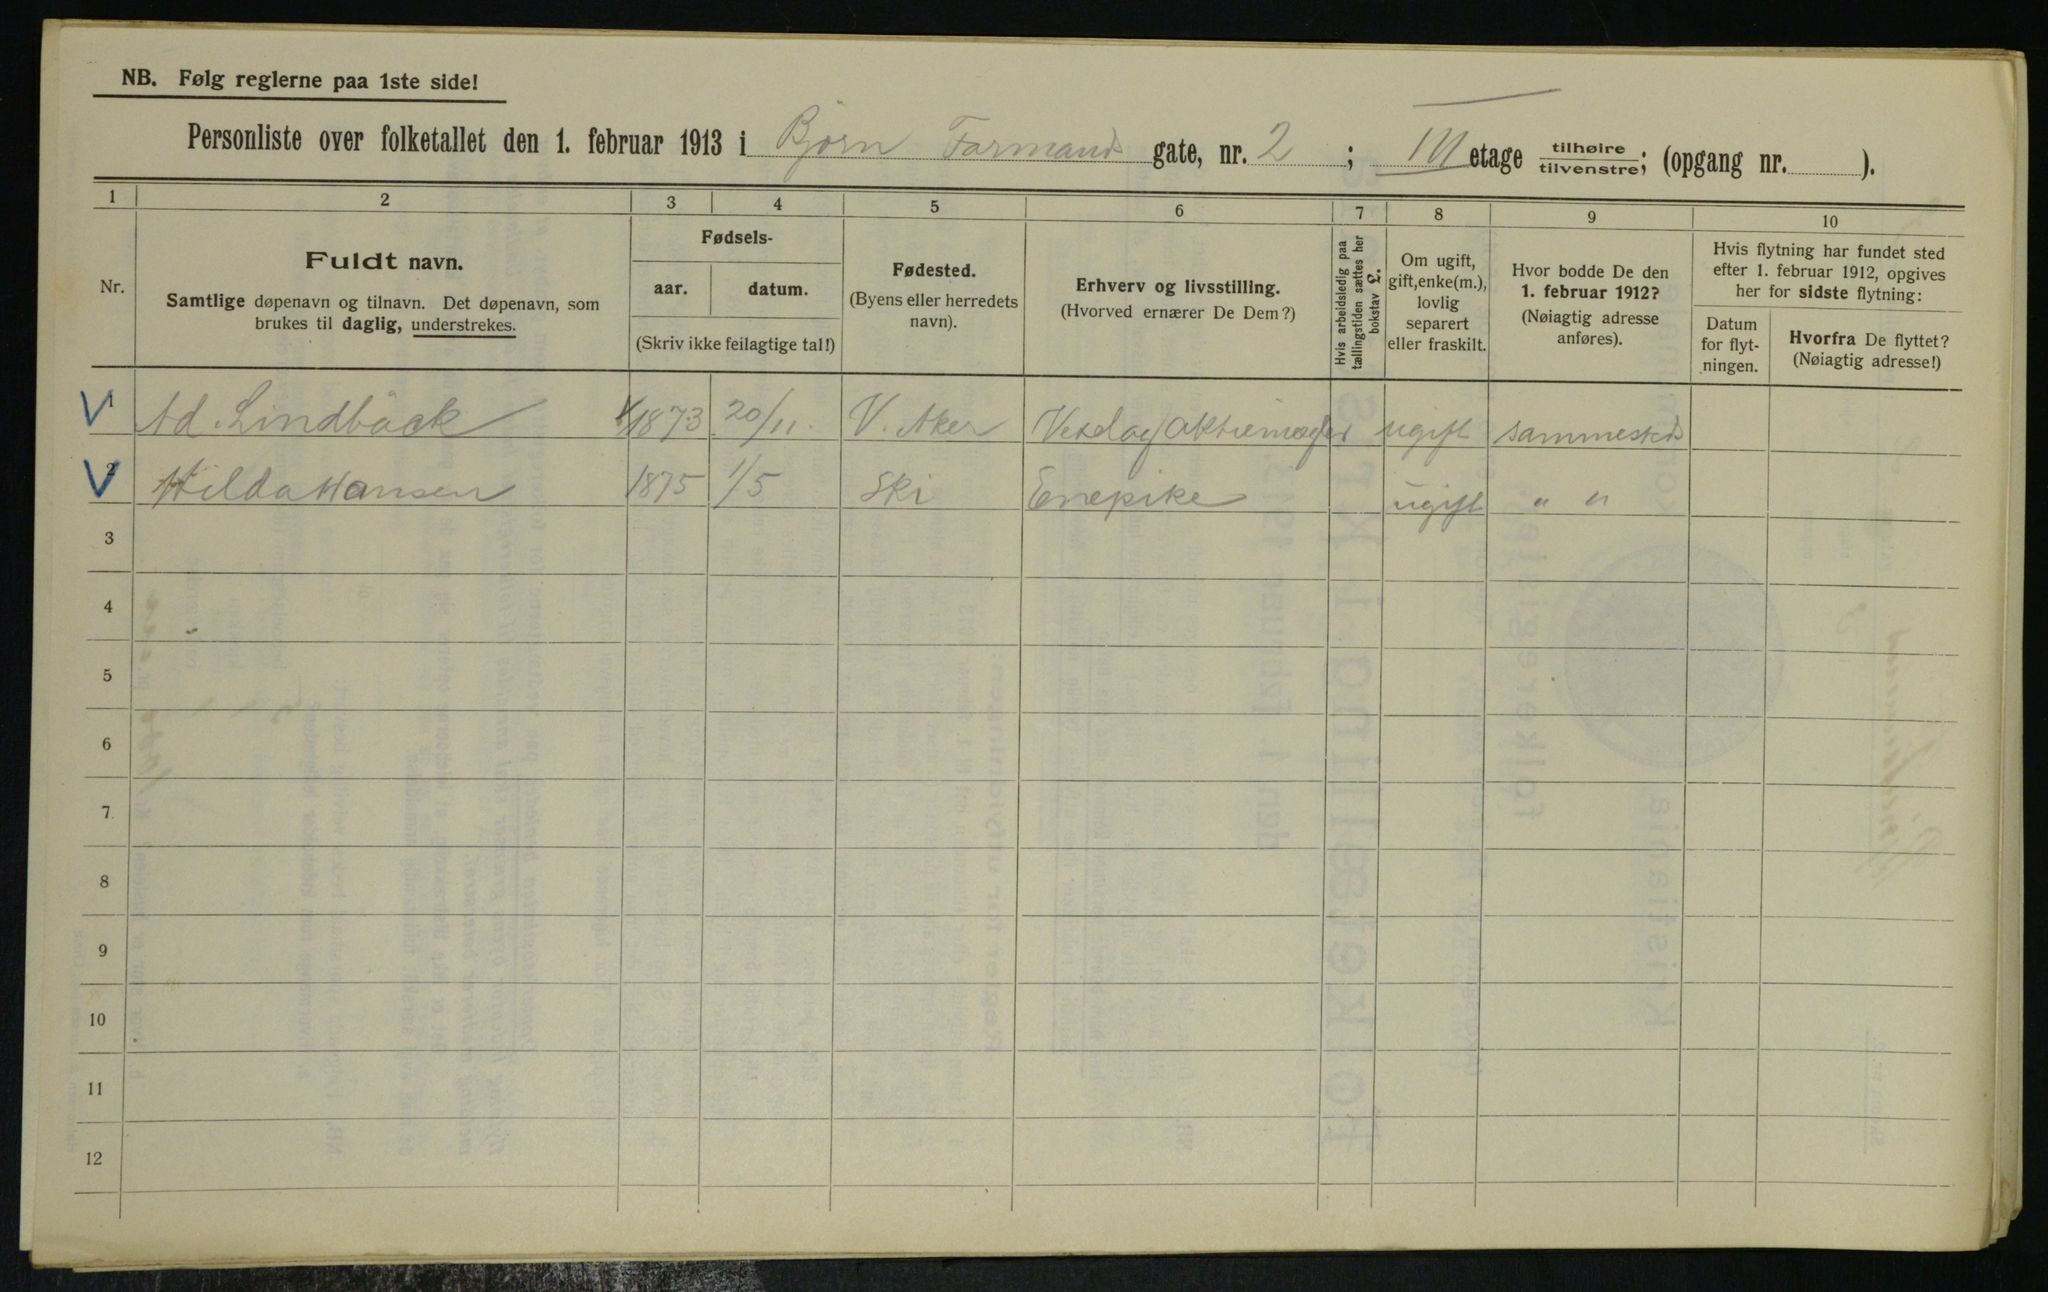 NB. Følg reglerne paa 1ste side!
Personliste over folketallet den 1. februar 1913 i Bjørn Farmands gate, nr. 2 ; III etage tilhøire tilvenstre; (opgang nr. ).
1 2 3 4 5 6 7 8 9 10
Nr.
Fuldt navn.
Samtlige døpenavn og tilnavn. Det døpenavn, som
brukes til daglig, understrekes.
Fødsels-
aar. datum.
(Skriv ikke feilagtige tal!)
Fødested.
(Byens eller herredets
navn).
Erhverv og livsstilling.
(Hvorved ernærer De Dem?)
Hvis arbeidsledig paa
tællingstiden sættes her
bokstav L.
Om ugift,
gift, enke(m.),
lovlig
separert
eller fraskilt.
Hvor bodde De den
1. februar 1912?
(Nøiagtig adresse
anføres).
Hvis flytning har fundet sted
efter 1. februar 1912, opgives
her for sidste flytning:
Datum
for flyt-
ningen.
Hvorfra De flyttet?
(Nøiagtig adresse!)
V 1 Ad. Lindbäck 1873 20/11. V. Aker ugift sammesteds
V 2 Hilda Hansen 1875 1/5 Ski Enepike ugift " "
3
4
5
6
7
8
9
10
11
12